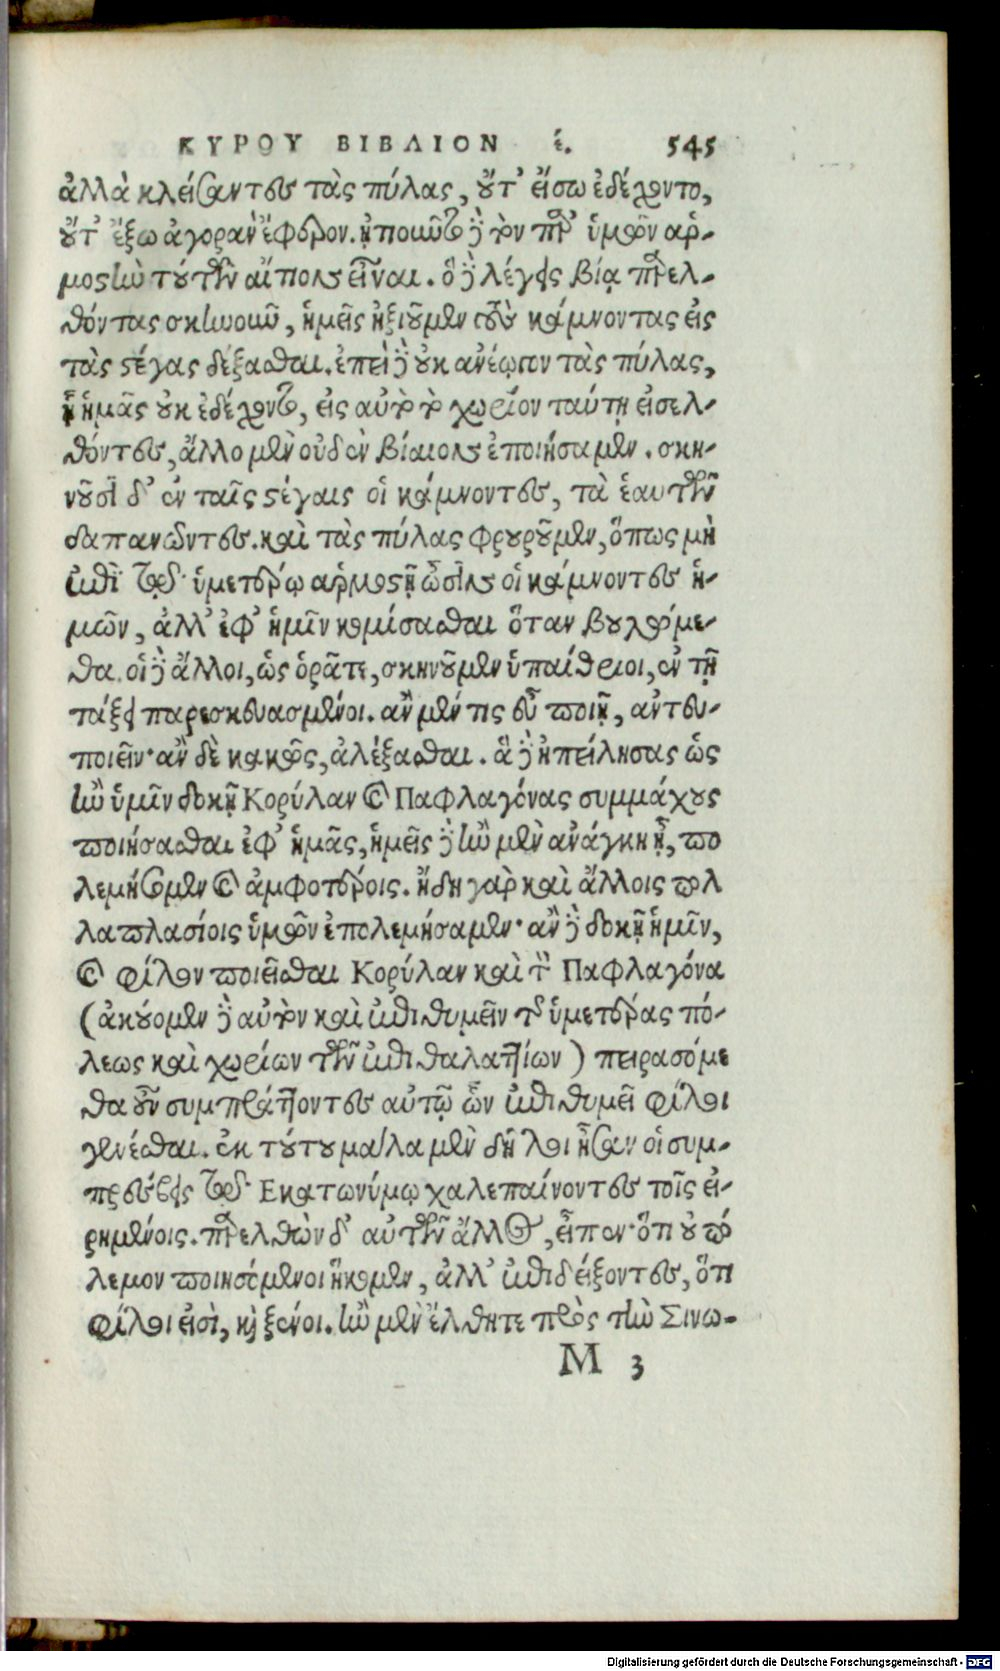 ΚΥΡΟΥ ΒΙΒΛΙΟΝ έ. 545
ἀλλὰ κλείσαντες τὰς πύλας, οὔτ' εἴσω ἐδέχοντο,
οὔτ' ἔξω ἀγορὰν ἔφερον. ᾐτιῶντο δὲ τὸν παρ' ὑμῶν ἁρ-
μοστὴν τούτων αἴτιον εἶναι. ὃ δὲ λέγεις βίᾳ παρελ-
θόντας σκηνοῦν, ἡμεῖς ἠξιοῦμεν τοὺς κάμνοντας εἰς
τὰς στέγας δέξασθαι. ἐπεὶ δὲ οὐκ ἀνέῳγον τὰς πύλας,
ᾗ ἡμᾶς οὐκ ἐδέχοντο, εἰς αὐτὸ τὸ χωρίον ταύτῃ εἰσελ-
θόντες, ἄλλο μὲν οὐδὲν βίαιον ἐποιήσαμεν. σκη-
νοῦσι δ' ἐν ταῖς στέγαις οἱ κάμνοντες, τὰ ἑαυτῶν
δαπανῶντες. καὶ τὰς πύλας φρουροῦμεν, ὅπως μὴ
ἐπὶ τῷ ὑμετέρῳ ἁρμοστῇ ὦσιν οἱ κάμνοντες ἡ-
μῶν, ἀλλ' ἐφ' ἡμῖν κομίσασθαι ὅταν βουλώμε-
θα. οἱ δὲ ἄλλοι, ὡς ὁρᾶτε, σκηνοῦμεν ὑπαίθριοι, ἐν τῇ
τάξει παρεσκευασμένοι. ἂν μέν τις εὖ ποιῇ, ἀντευ-
ποιεῖν· ἂν δὲ κακῶς, ἀλέξασθαι. ἃ δὲ ἠπείλησας ὡς
ἢν ὑμῖν δοκῇ Κορύλαν καὶ Παφλαγόνας συμμάχους
ποιήσασθαι ἐφ' ἡμᾶς, ἡμεῖς δὲ ἢν μὲν ἀνάγκη ᾖ, πο
λεμήσομεν καὶ ἀμφοτέροις. ἤδη γὰρ καὶ ἄλλοις πολ
λαπλασίοις ὑμῶν ἐπολεμήσαμεν· ἂν δὲ δοκῇ ἡμῖν,
καὶ φίλον ποιεῖσθαι Κορύλαν καὶ τὸν Παφλαγόνα
(ἀκούομεν δὲ αὐτὸν καὶ ἐπιθυμεῖν τῆς ὑμετέρας πό-
λεως καὶ χωρίων τῶν ἐπιθαλαττίων) πειρασόμε
θα οὖν συμπράττοντες αὐτῷ ὧν ἐπιθυμεῖ φίλοι
γενέσθαι. ἐκ τούτου μάλα μὲν δῆλοι ἦσαν οἱ συμ-
πρέσβεις τῷ Εκατωνύμῳ χαλεπαίνοντες τοῖς εἰ-
ρημένοις. παρελθὼν δ' αὐτῶν ἄλλος, εἶπεν ὅτι οὐ πό
λεμον ποιησόμενοι ἥκομεν, ἀλλ' ἐπιδείξοντες, ὅτι
φίλοι εἰσὶ, καὶ ξένοι. ἢν μὲν ἔλθητε πρὸς τὴν Σινω-
M 3
Digitalisierung gefördert durch die Deutsche Forschungsgemeinschaft - DFG